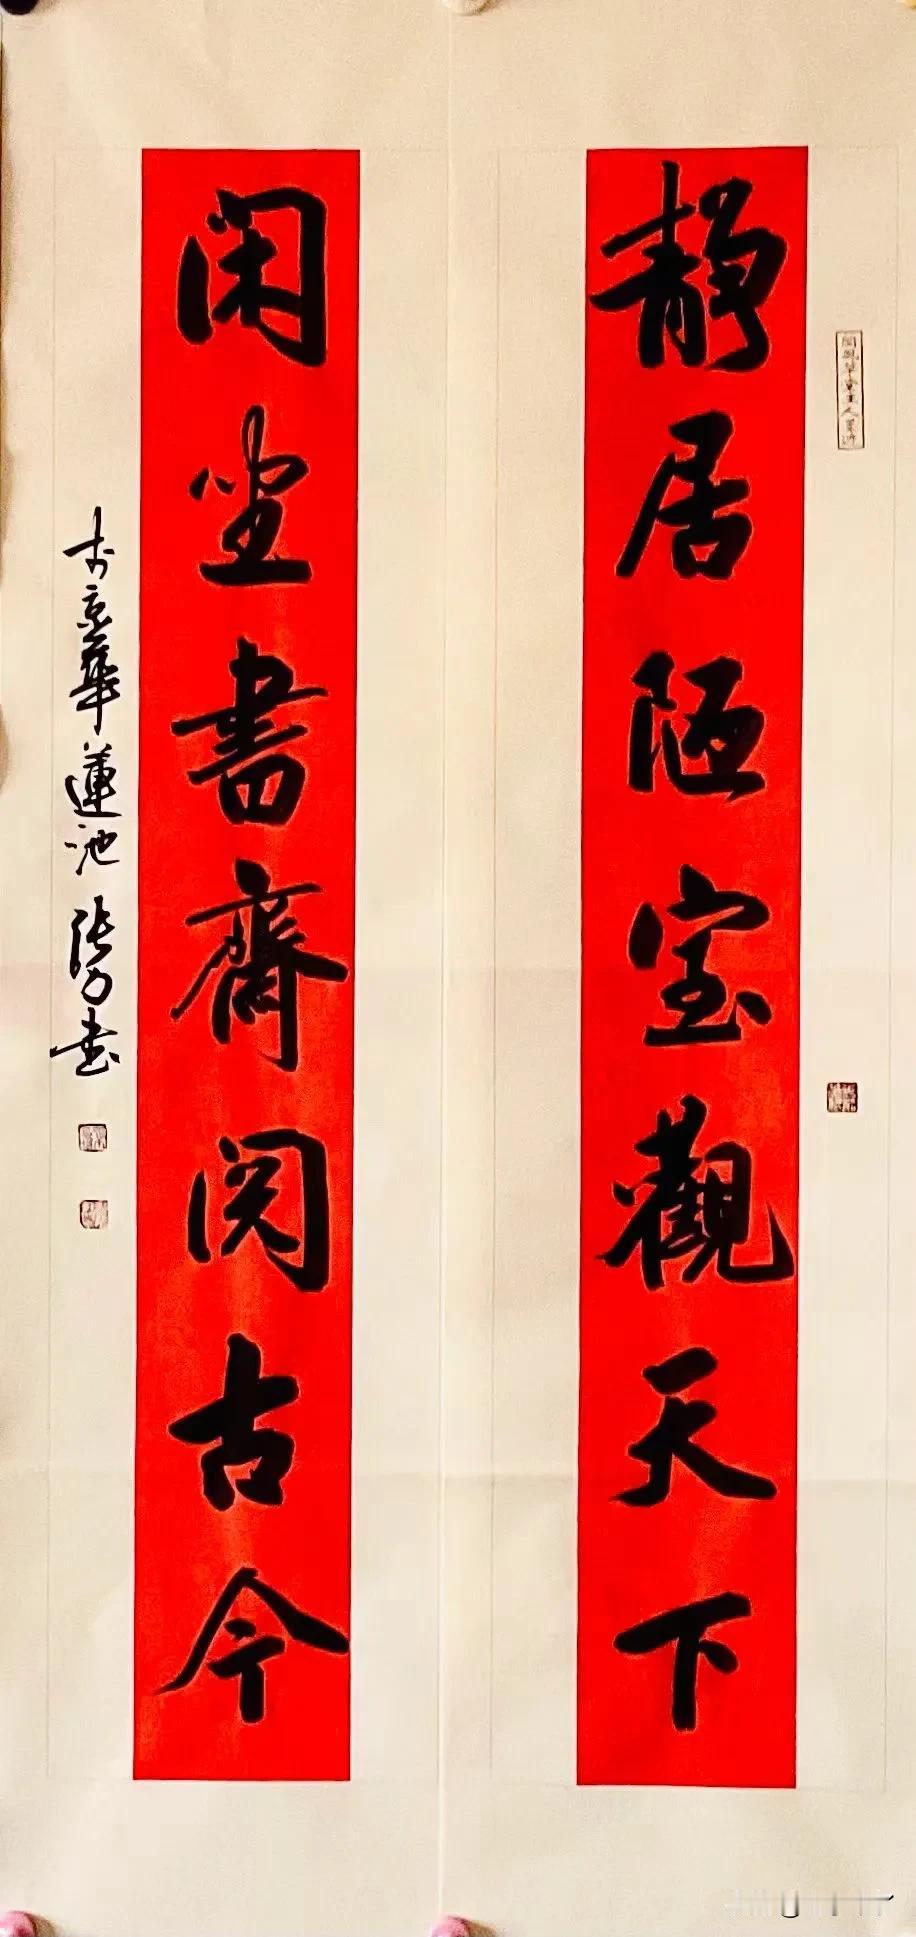 静居陋室觀天下
闲坐書齋阅古今
於京華蓮池 張力書